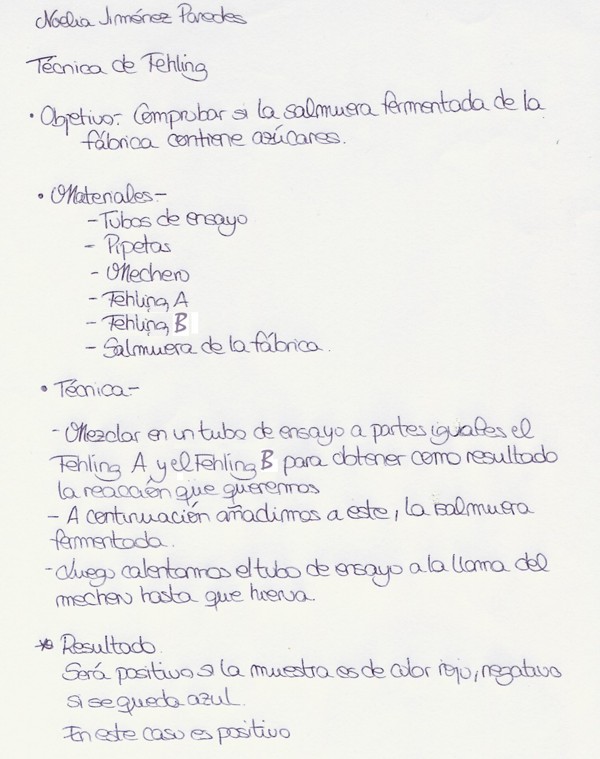 Noelia Jiménez Paredes
Técnica de Fehling
• Objetivo:- Comprobar si la salmuera fermentada de la
fábrica contiene azúcares.
• Materiales-
- Tubos de ensayo
- Pipetas
- Mechero
- Fehling A
- Fehling B
- Salmuera de la fábrica.
• Técnica-
- Mezclar en un tubo de ensayo a partes iguales el
Fehling A y el Fehling B para obtener como resultado
la reacción que queremos
- A continuación añadimos a este, la salmuera
fermentada.
- Luego calentamos el tubo de ensayo a la llama del
mechero hasta que hierva.
* Resultado.
Será positivo si la muestra es de color rojo, negativo
si se queda azul.
En este caso es positivo